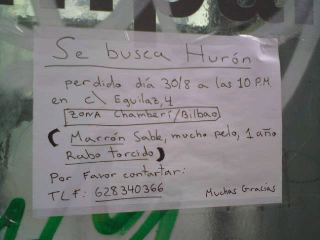 Se busca Hurón
perdido día 30/8 a las 10 P.M
en c\ Eguilaz, 4
ZONA Chamberí/Bilbao
(Marrón Sable, mucho pelo, 1 año
Rabo torcido)
Por Favor contartar:
TLF: 628340366
Muchas Gracias